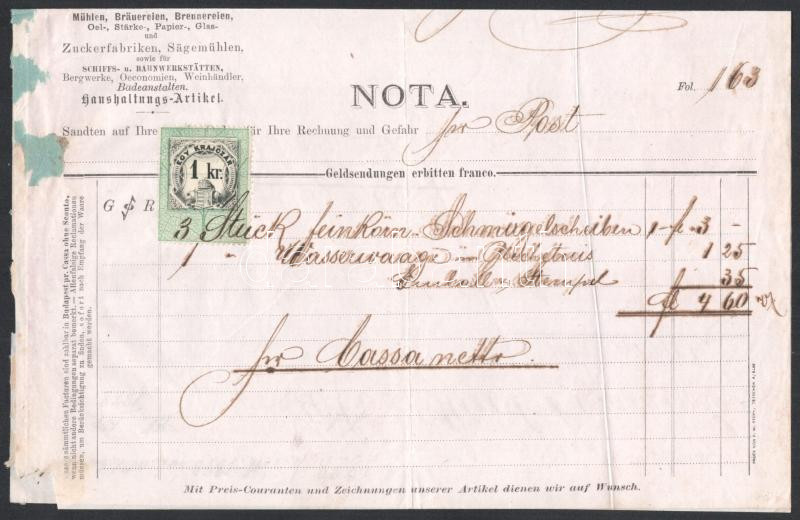 Mühlen, Bräuereien, Brennereien,
Oel-, Stärke-, Papier-, Glas-
und
Zuckerfabriken, Sägemühlen,
sowie für
SCHIFFS- u. BAHNWERKSTÄTTEN,
Bergwerke, Oeconomien, Weinhändler,
Badeanstalten.
Haushaltungs-Artikel.
NOTA.
Fol. 163
Sandten auf Ihre für Ihre Rechnung und Gefahr per Post
EGY KRAJCZÁR
1 kr.
Geldsendungen erbitten franco.
G & R
3 Stück feinkörn. Schmirgelscheiben 1 - fl 3 -
1 - Wasserwaage 1 25
Stempel 35
fl 4 60
per Cassa netto.
sämmtlichen Facturen sind zahlbar in Budapest pr. Cassa ohne Sconto,
wenn nicht andere Bedingungen separat bemerkt. — Allenfalsige Reclamationen
müssen, um Berücksichtigung zu finden, sofort nach Empfang der Waare
gemacht werden.
Mit Preis-Couranten und Zeichnungen unserer Artikel dienen wir auf Wunsch.